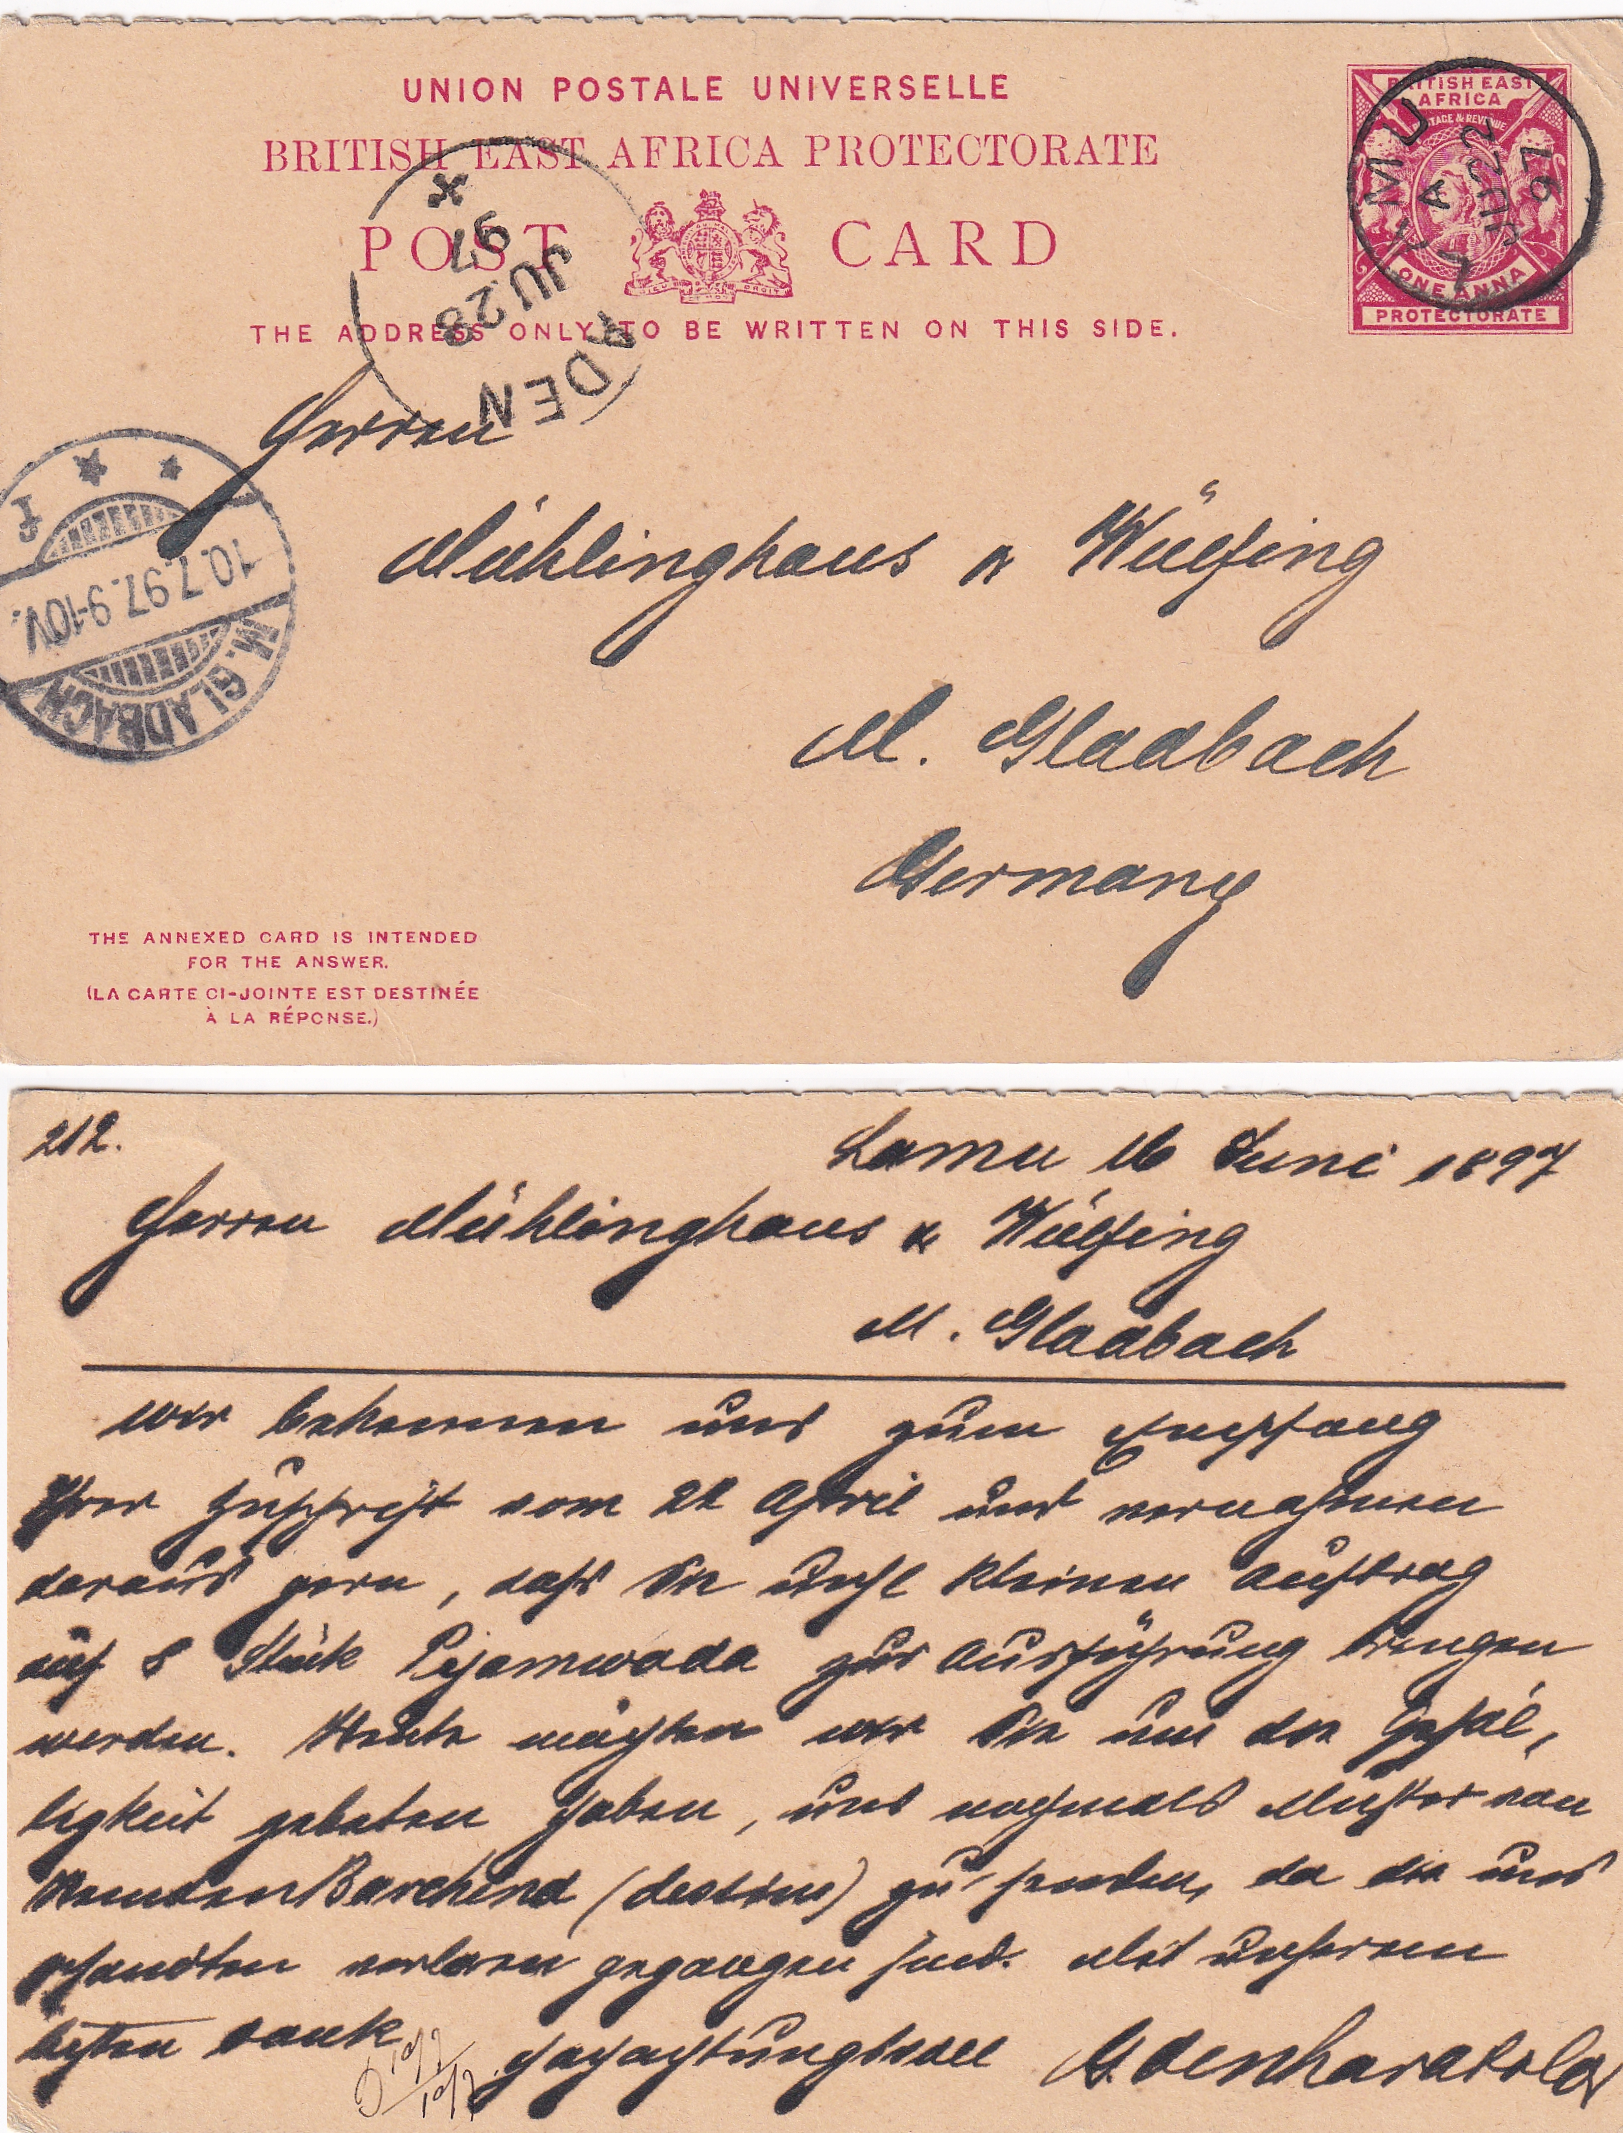 UNION POSTALE UNIVERSELLE
BRITISH EAST AFRICA PROTECTORATE
POST CARD
THE ADDRESS ONLY TO BE WRITTEN ON THIS SIDE.
BRITISH EAST
AFRICA
POSTAGE & REVENUE
ONE ANNA
PROTECTORATE
LAMU
A
JU 22
97
ADEN
JU 28
97
M. GLADBACH
10.7.97. 9-10V.
f
Herren
Mühlinghaus & Wülfing
M. Gladbach
Germany
THE ANNEXED CARD IS INTENDED
FOR THE ANSWER.
(LA CARTE CI-JOINTE EST DESTINÉE
À LA RÉPONSE.)
212.
Lamu 16 Juni 1897
Herren Mühlinghaus & Wülfing
M. Gladbach
Wir bekennen uns zum Empfang
Ihrer Zuschrift vom 22 April und vernahmen
daraus gern, dass Sie kleinen Auftrag
auf 8 Stück Pejamwada zur Ausführung bringen
werden. Heute möchten wir Sie um die Gefäl-
ligkeit gebeten haben, uns nochmals Muster von
Hemden Barchend (dessins) zu senden, da die uns
gesandten verloren gegangen sind. Mit unserem
besten Dank
Hochachtungsvoll
10/7